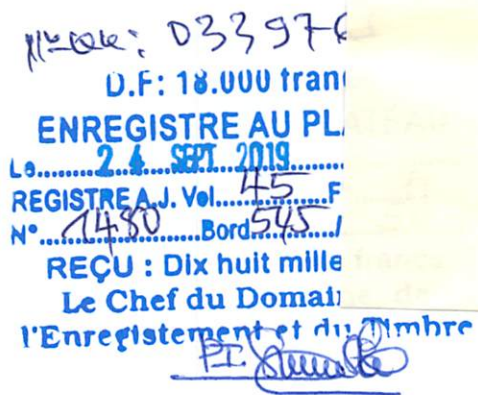 D.F: 18.000 fran
ENREGISTRE AU PL
Le.......2 4 SEPT 2019.......
REGISTRE A.J. Vol....45.......F
N°....1480......Bord.545..../
REÇU : Dix huit mille
Le Chef du Domai
l'Enregistement et du Timbre
P.I.